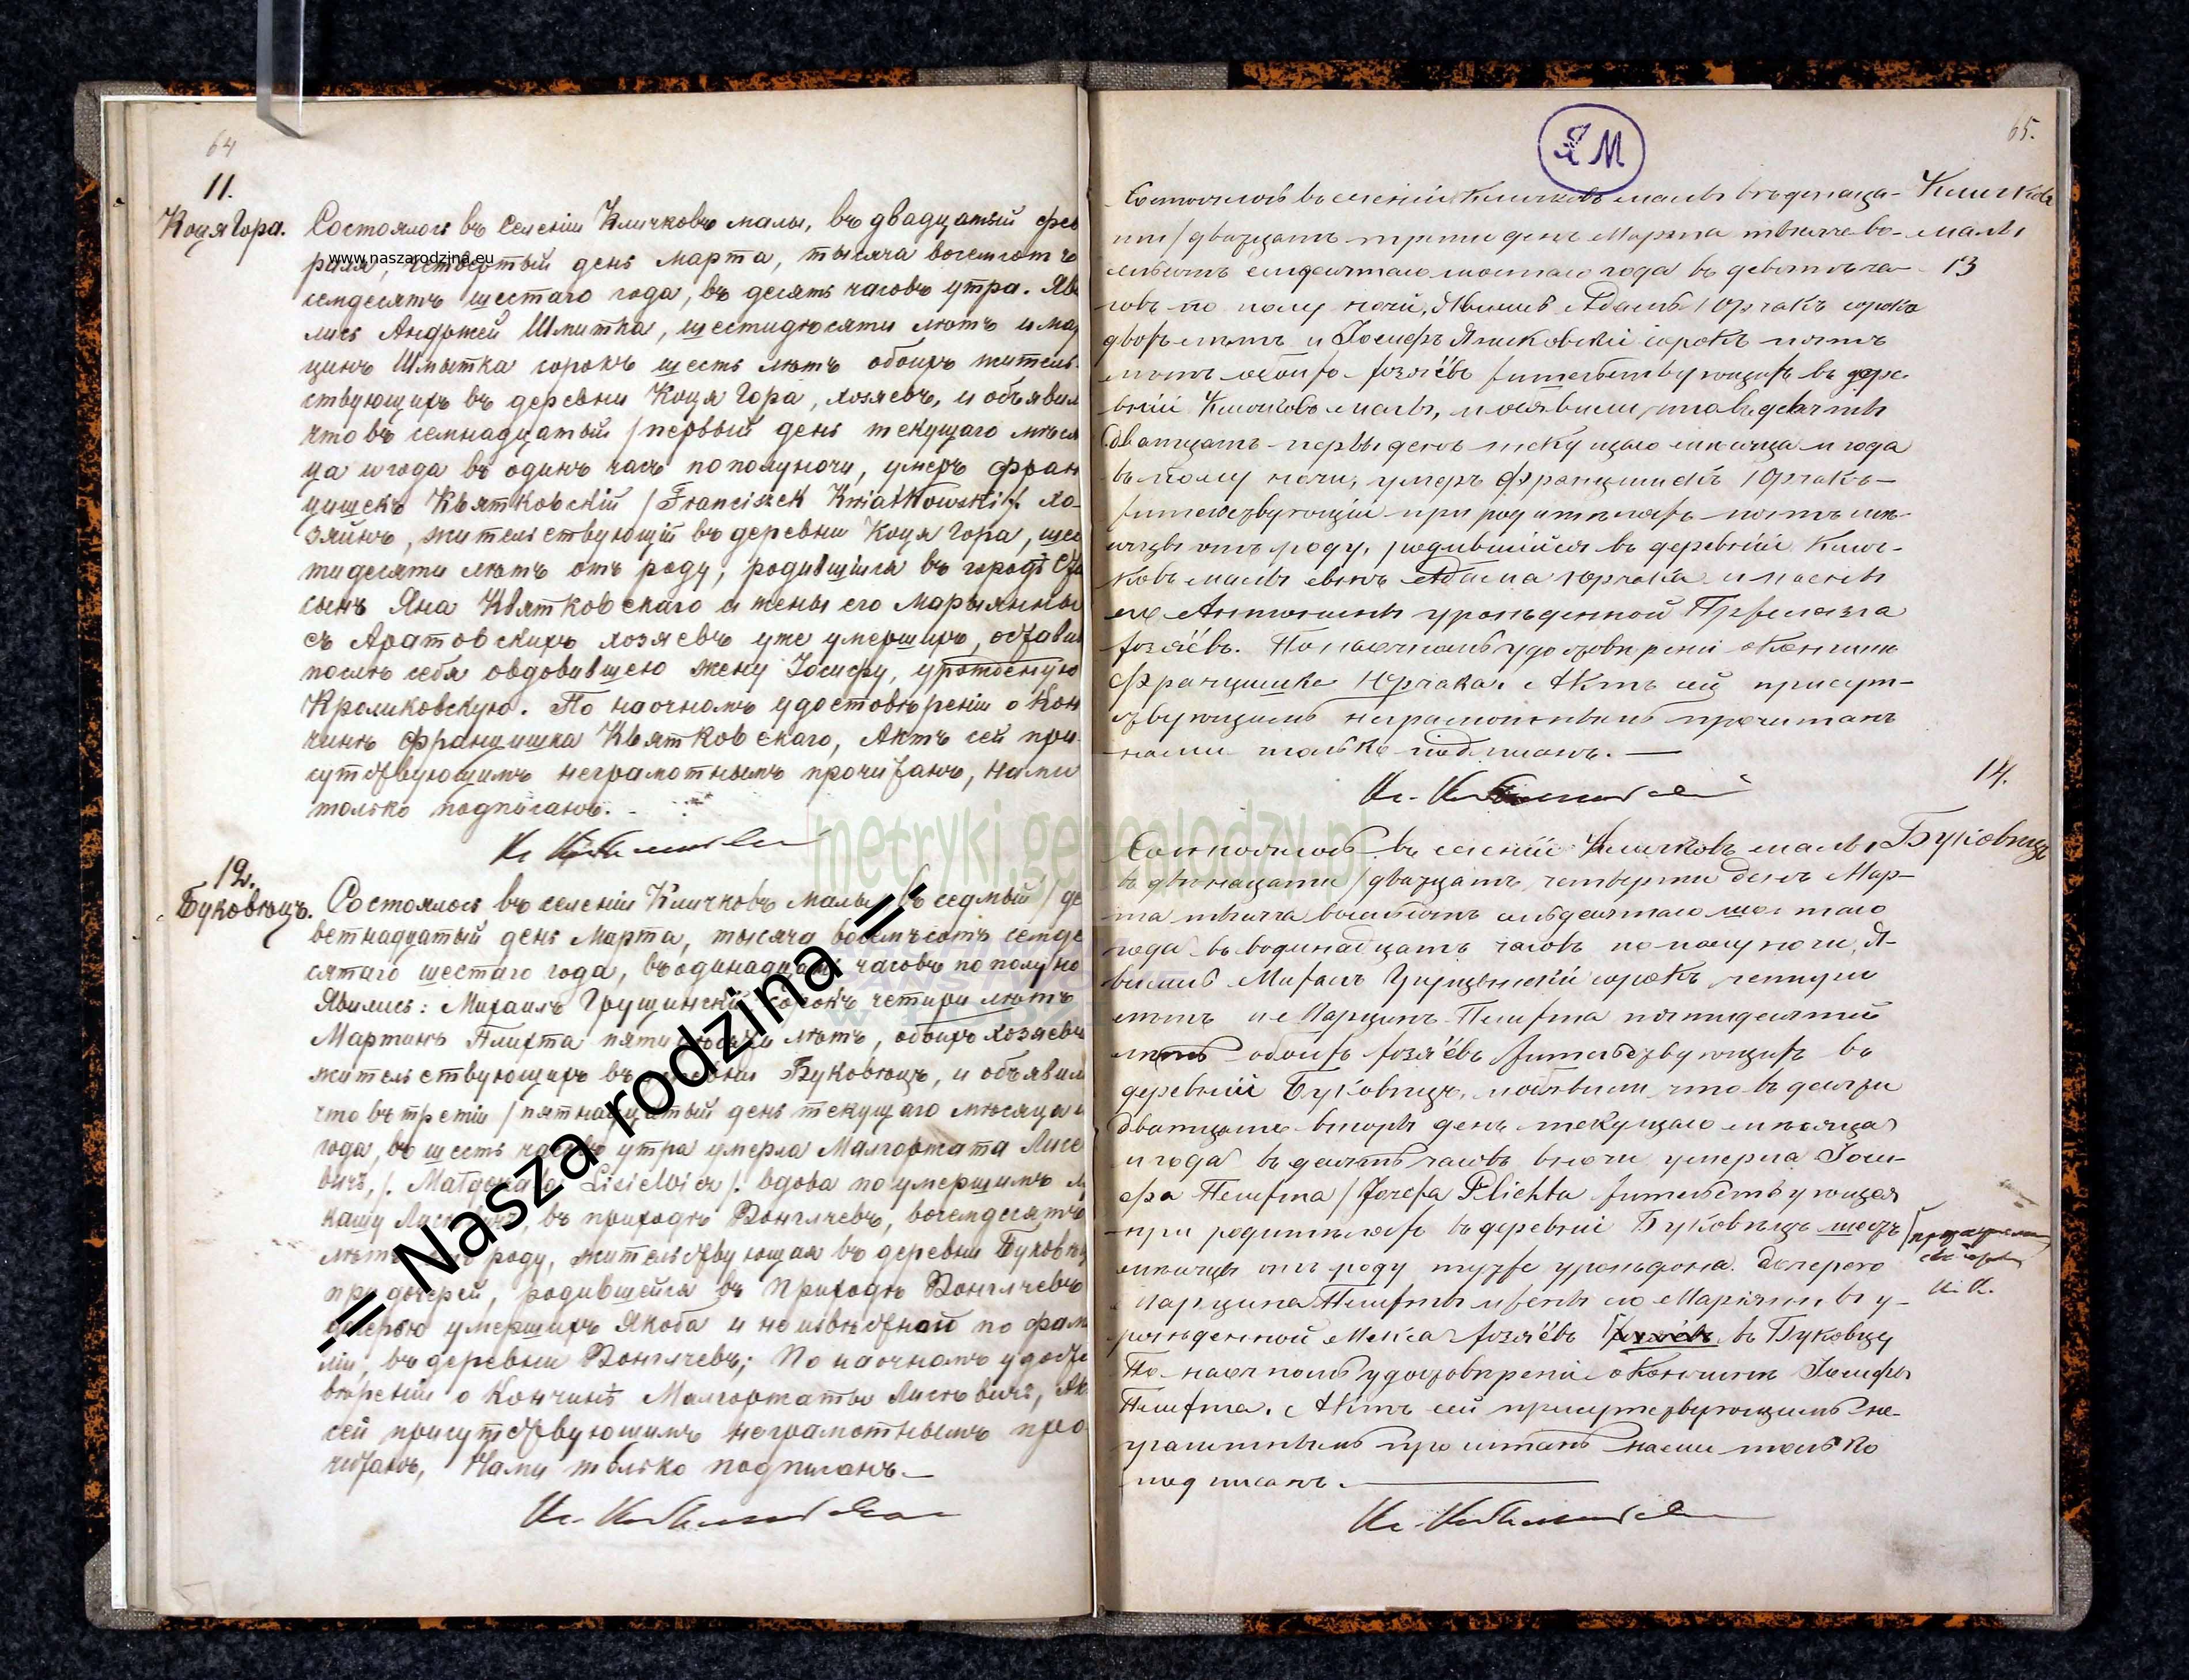 64
11.
Коця Гора.
Состоялось въ селеніи Кличковъ малы, въ двадцатый фев
раля, четвертый день марта, тысяча восемсотъ
семдесятъ шестаго года, въ десять часовъ утра. Яви
лись Анджей Шмитка, шестидюсяти лютъ и мар
цинъ Шмытка сорокъ шесть лютъ обоихъ житель-
ствующихъ въ деревни Коця Гора, хозяевъ, и объявил
что въ семнадцатый / первый день текущаго мюся
ца и года въ одинъ часъ пополуночи, умеръ Фран
цишекъ Квятковскій /Franciszek Kwiatkowski/. хо-
зяинъ, жительствующій въ деревни Коця Гора, шес
тидесяти лютъ отъ роду, родившійся въ городѣ
сынъ Яна Квятковскаго и жены его Марыянны
съ Аратовскихъ хозяевъ уже умершихъ, оставил
послю себя овдовившею жену Іосифу, урожденую
Кроликовскую. По наочномъ удостовюреніи о Кон
чиню Францишка Квятковскаго, Актъ сей при-
сутствующимъ неграмотнымъ прочитанъ, нами
только подписанъ. -
12.
Буковюцъ.
Состоялось въ селеніи Кличковъ малы въ седмый / де
ветнадцатый день Марта, тысяча восемъсотъ семде
сятаго шестаго года, въ одинадцать часовъ по полуно
Явились: Михаилъ Грущинскій сорокъ четири лютъ
Мартинъ Плихта пяти лютъ, обоихъ хозяевъ
жительствующихъ въ деревни Буковюцъ, и объявил
что въ третіи / пятнадцатый день текущаго мюсяца и
года, въ шесть часовъ утра умерла Малгоржата Лисе
вичъ, /. Małgorzata Lisiewicz /. вдова по умершимъ
кашу въ приходю Вонглчевъ, восемдесятъ
лютъ отъ роду, жительствующая въ деревни Буковюц
при дочерей, родившейся въ Приходю Вонглчевъ
дочерью умершихъ Якоба и неизвюстной по фами
ліи, въ деревни Вонглчевъ; По наочномъ удосто
вюреніи о Кончинѣ Малгоржаты Лисювичъ, Ак
сей присутствующимъ неграмотнымъ про
читанъ, Нами только подписанъ. —
65.
Я М
Состоялось въ селеніи Кличковъ малы въ
/ двадцать трети день Марта тысяча во-
семсотъ семдесятаго шостаго года въ девятъ ча-
совъ по полу ночи, Явились Адамъ Юрчакъ сорокъ
двохъ лѣтъ и Іосифъ Ячиковскій сорокъ пять
лѣтъ обоихъ хозяёвъ жительствующихъ въ дере-
вніи Кличковъ малы, и объявили, что въ девяты
/двадцать первы день текущаго мѣсяца и года
въ полу ночи, умеръ Францишекъ Юрчакъ —
жительствующіи при родителяхъ пять мѣ-
сяцы отъ роду, родившійся въ деревніи Клич-
ковъ малы сынъ Адама Юрчака и жены
его Антонины урожденной
хозяёвъ. По наочномъ удостовѣреніи о Кончинѣ
Францишка Юрчака. Актъ сей присут-
ствующимъ неграмотнымъ прочитанъ
нами только подписанъ. —
Кличковъ
малы
13
14.
Буковецъ
Состоялось въ селеніи Кличковъ малы
въ двѣнацати / двадцать четверти день Мар-
та тысяча восемсотъ семдесятаго шостаго
года въ водинадцать часовъ по полу ночи, Я-
вились Михалъ Грущинскій сорокъ четири
лѣтъ и Марцинъ Плихта пятидесятий
лѣтъ обоихъ хозяёвъ жительствующихъ въ
деревніи Буковецъ, и объявили что въ десяти
двадцать вторы день текущаго мѣсяца
и года въ десять часовъ въ ночи умерла Іоси-
фа Плихта /Józefa Plichta жительствующая
при родителяхъ въ деревніи Буковецъ шесть
мѣсяцы отъ роду тутже урождона. Дочерею
Марцина Плихты и жены его Маріянны въ у-
рожденной хозяёвъ въ Буковцу
По наочномъ удостовѣреніи о Кончинѣ Іосифы
Плихта. Актъ сей присутствующимъ не-
грамотнымъ прочитанъ нами только
подписанъ. —
www.naszarodzina.eu
= Nasza rodzina =
metryki.genealodzy.pl